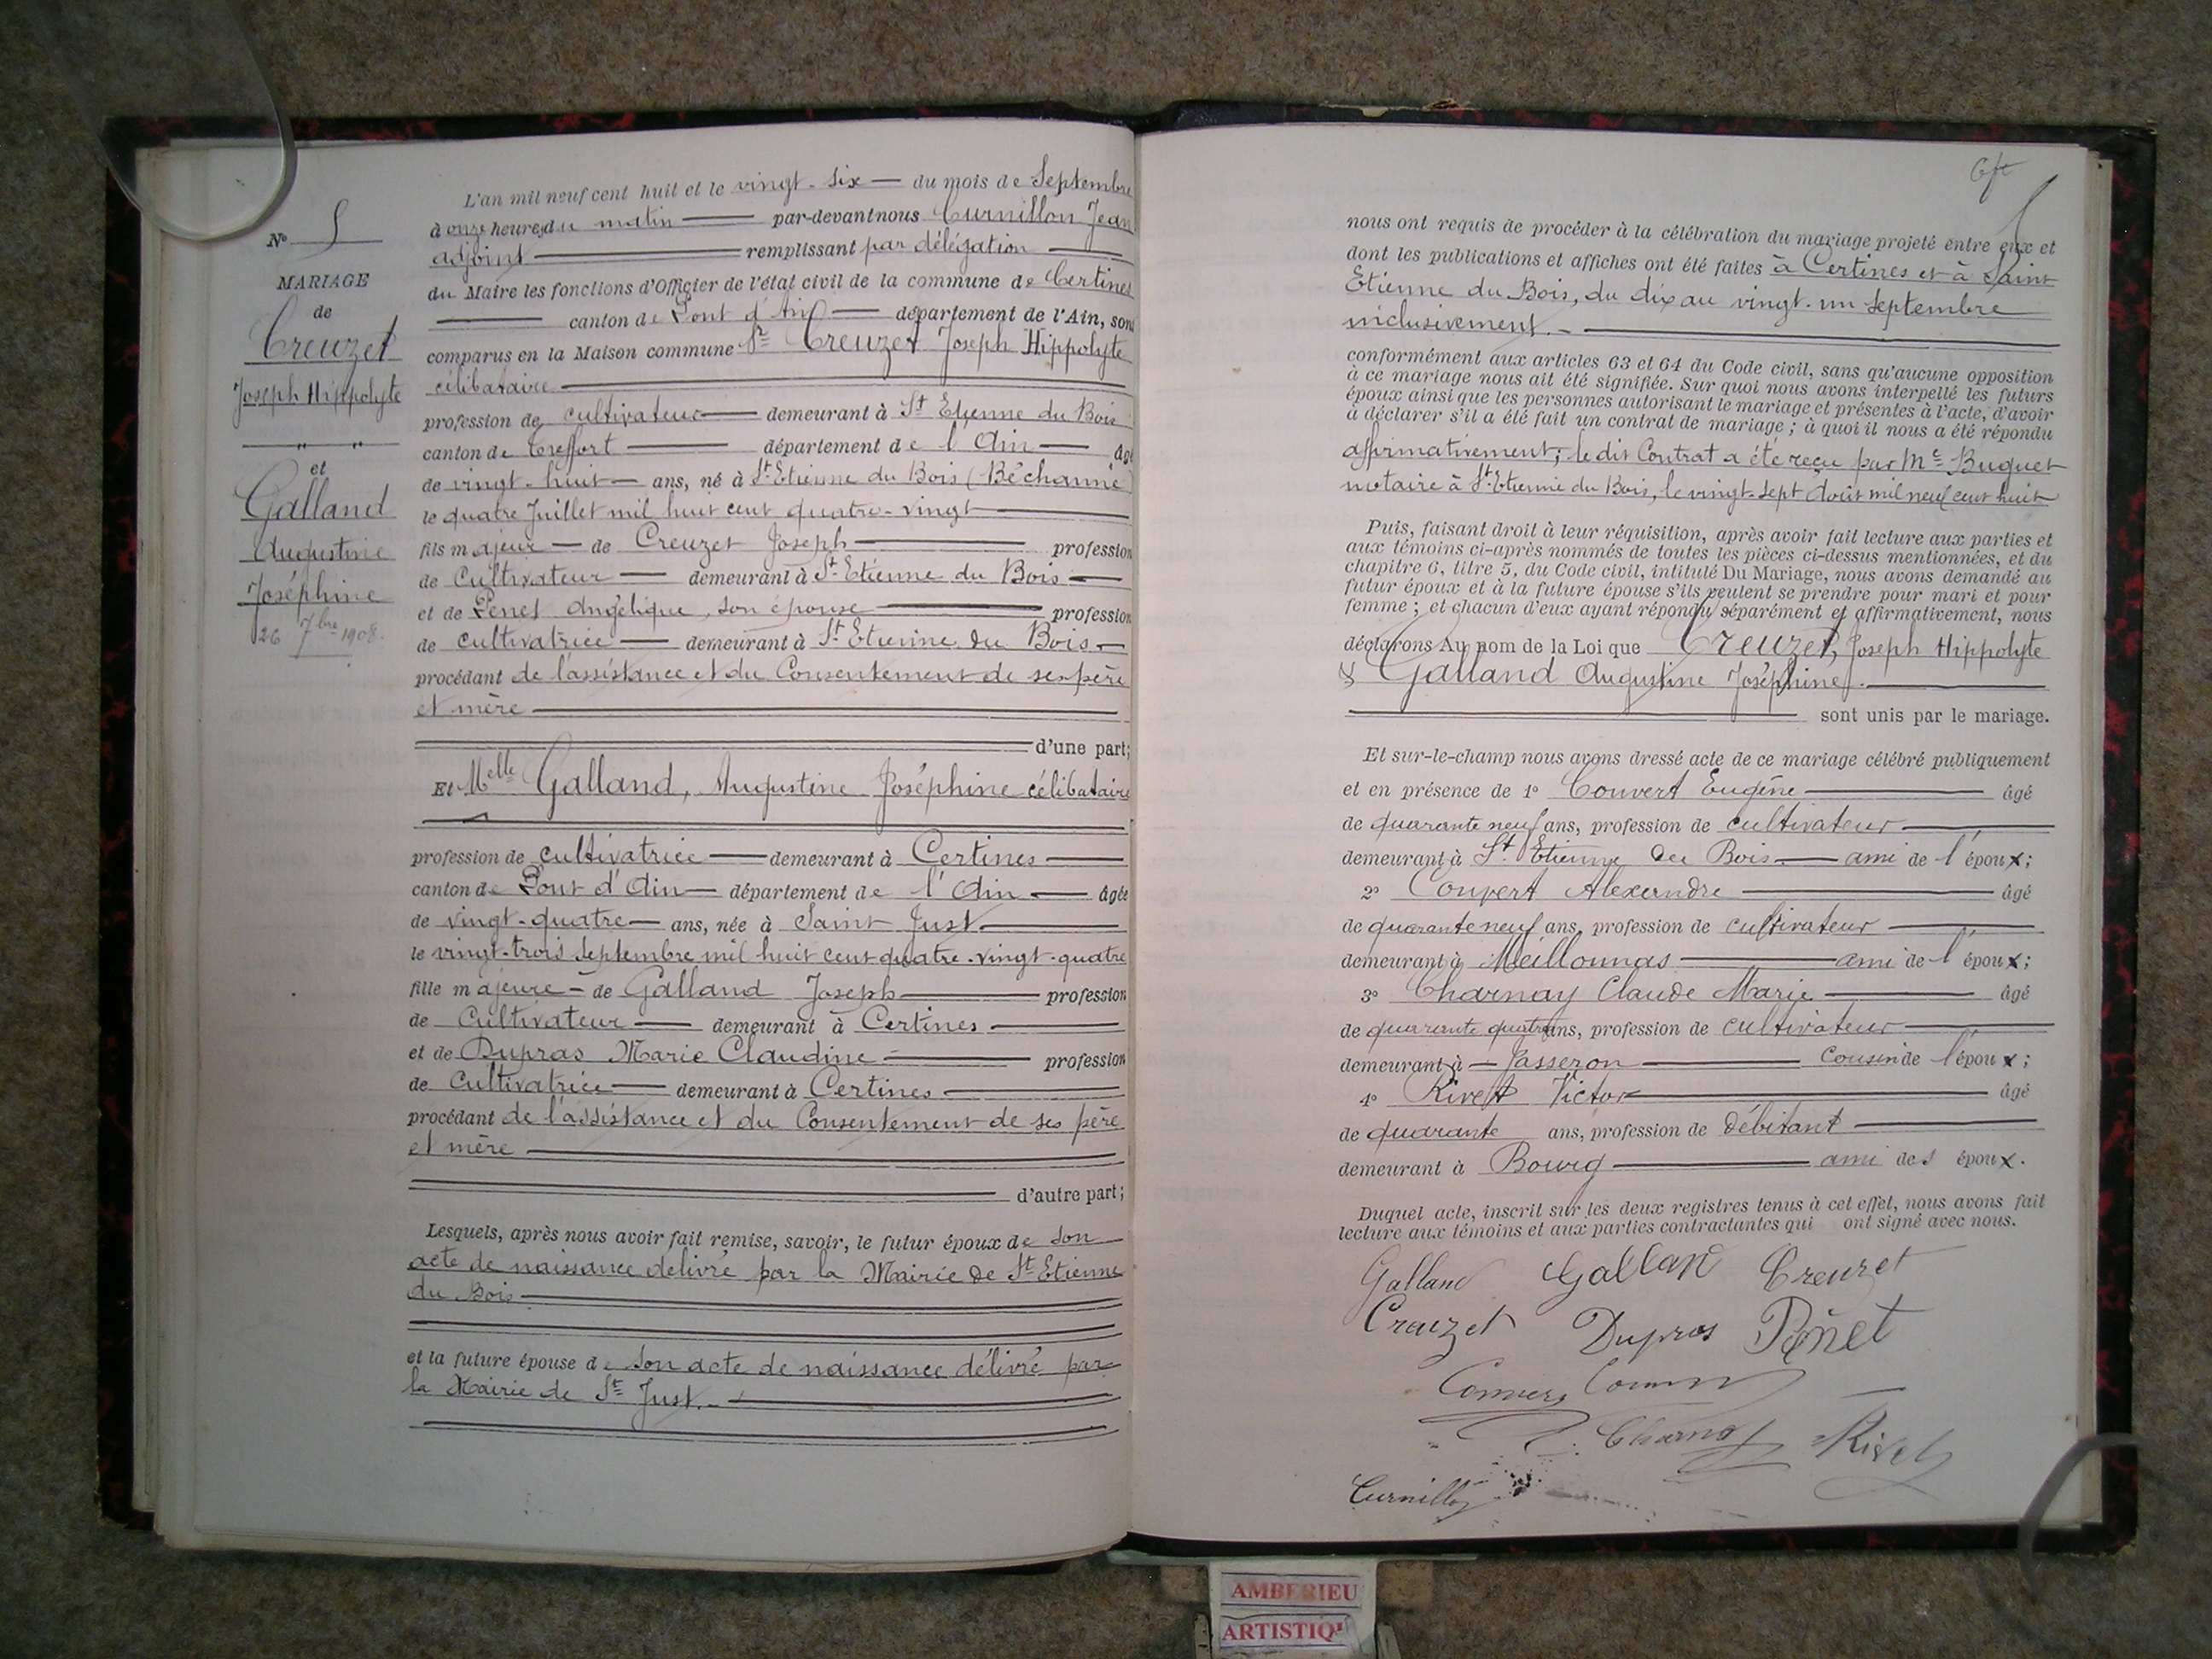 Nº 5
MARIAGE
de
Creuzet
Joseph Hippolyte
et
Galland
Augustine
Joséphine
26 7bre 1908.
L'an mil neuf cent huit et le vingt-six — du mois de Septembre
à onze heures du matin — par-devant nous Curnillon Jean
adjoint — remplissant par délégation —
du Maire les fonctions d'Officier de l'état civil de la commune de Certines
— canton de Pont d'Ain — département de l'Ain, sont
comparus en la Maison commune Sr Creuzet Joseph Hippolyte
célibataire —
profession de cultivateur — demeurant à St Etienne du Bois
canton de Treffort — département de l'Ain — âgé
de vingt-huit — ans, né à St Etienne du Bois (Béchanne
le quatre Juillet mil huit cent quatre-vingt —
fils majeur — de Creuzet Joseph — profession
de Cultivateur — demeurant à St Etienne du Bois —
et de Penet Angélique, son épouse — profession
de cultivatrice — demeurant à St Etienne du Bois —
procédant de l'assistance et du Consentement de ses père
et mère —
d'une part;
Et Melle Galland, Augustine Joséphine célibataire
profession de cultivatrice — demeurant à Certines —
canton de Pont d'Ain — département de l'Ain — âgée
de vingt-quatre — ans, née à Saint Just —
le vingt-trois Septembre mil huit cent quatre-vingt-quatre
fille majeure — de Galland Joseph — profession
de Cultivateur — demeurant à Certines —
et de Dupras Marie Claudine — profession
de Cultivatrice — demeurant à Certines —
procédant de l'assistance et du Consentement de ses père
et mère —
d'autre part;
Lesquels, après nous avoir fait remise, savoir, le futur époux de son
acte de naissance délivré par la Mairie de St Etienne
du Bois —
et la future épouse de son acte de naissance délivré par
la Mairie de St Just. —
nous ont requis de procéder à la célébration du mariage projeté entre eux et
dont les publications et affiches ont été faites à Certines et à Saint
Etienne du Bois, du dix au vingt-un Septembre
inclusivement. —
conformément aux articles 63 et 64 du Code civil, sans qu'aucune opposition
à ce mariage nous ait été signifiée. Sur quoi nous avons interpellé les futurs
époux ainsi que les personnes autorisant le mariage et présentes à l'acte, d'avoir
à déclarer s'il a été fait un contrat de mariage; à quoi il nous a été répondu
affirmativement; le dit Contrat a été reçu par Me Buguet
notaire à St Etienne du Bois, le vingt-sept Août mil neuf cent huit
Puis, faisant droit à leur réquisition, après avoir fait lecture aux parties et
aux témoins ci-après nommés de toutes les pièces ci-dessus mentionnées, et du
chapitre 6, titre 5, du Code civil, intitulé Du Mariage, nous avons demandé au
futur époux et à la future épouse s'ils veulent se prendre pour mari et pour
femme; et chacun d'eux ayant répondu séparément et affirmativement, nous
déclarons Au nom de la Loi que Creuzet, Joseph Hippolyte
& Galland Augustine Joséphine. —
— sont unis par le mariage.
Et sur-le-champ nous avons dressé acte de ce mariage célébré publiquement
et en présence de 1º Couvert Eugène — âgé
de quarante neuf ans, profession de cultivateur —
demeurant à St Etienne du Bois — ami de l'époux;
2º Couvert Alexandre — âgé
de quarante neuf ans, profession de cultivateur —
demeurant à Meillonnas — ami de l'époux;
3º Charnay Claude Marie — âgé
de quarante quatre ans, profession de cultivateur —
demeurant à — Jasseron — Cousin de l'époux;
4º Rivet Victor — âgé
de quarante ans, profession de débitant —
demeurant à Bourg — ami des époux.
Duquel acte, inscrit sur les deux registres tenus à cet effet, nous avons fait
lecture aux témoins et aux parties contractantes qui ont signé avec nous.
Galland Galland Creuzet
Creuzet Dupras Penet
Charnay Rivet
Curnillon
AMBERIEU
ARTISTIQ